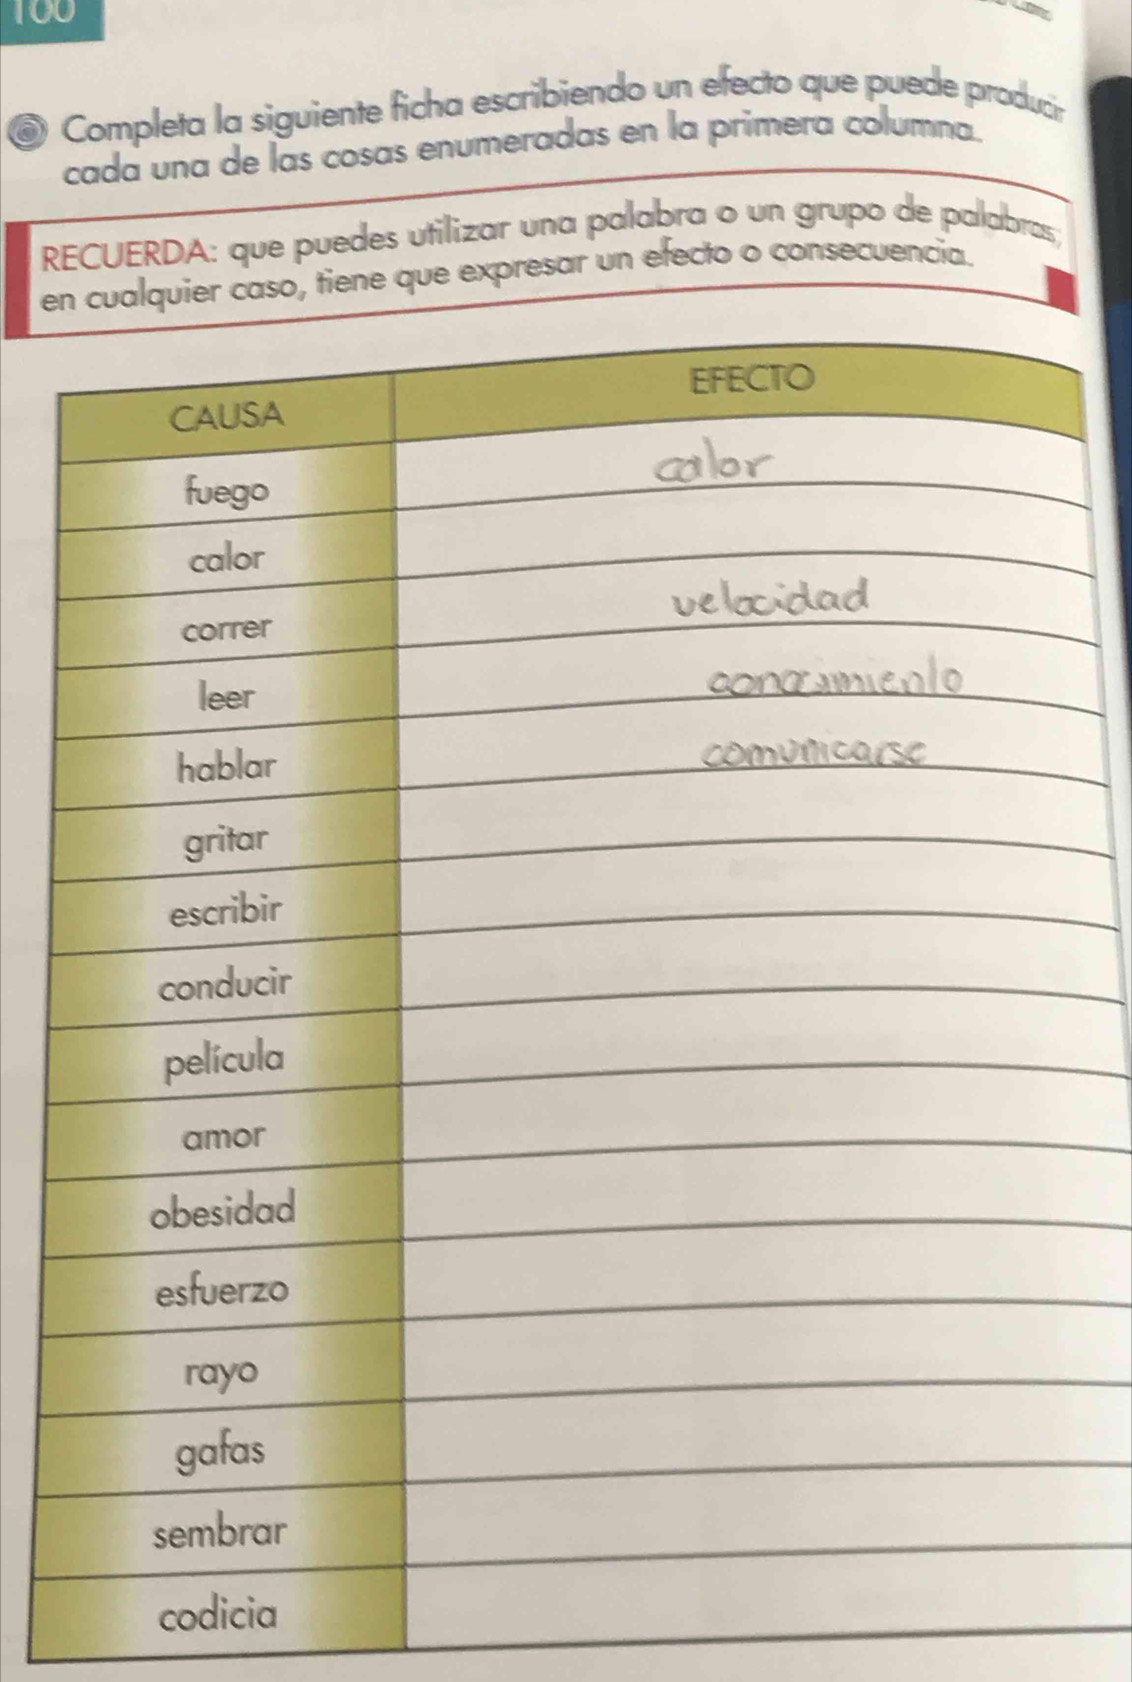 100
Completa la siguiente ficha escribiendo un efecto que puede producir
cada una de las cosas enumeradas en la primera columna.
RECUERDA: que puedes utilizar una palabra o un grupo de palabras;
en cualquier caso, tiene que expresar un efecto o consecuencia.
CAUSA EFECTO
fuego calor
calor
correr velocidad
leer conocimiento
hablar comunicarse
gritar
escribir
conducir
película
amor
obesidad
esfuerzo
rayo
gafas
sembrar
codicia